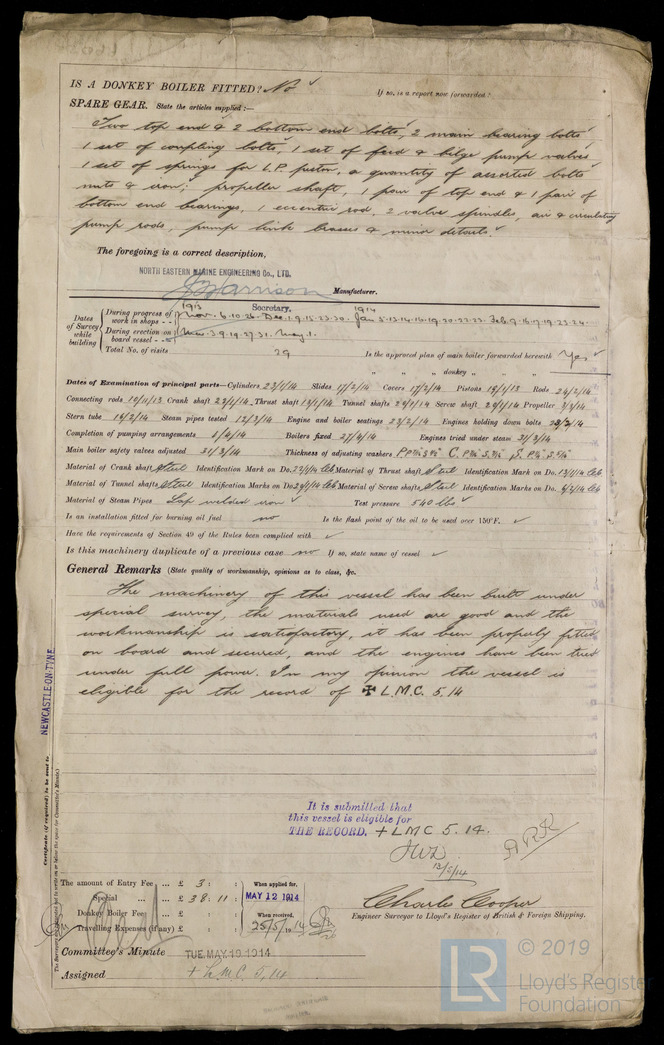 IS A DONKEY BOILER FITTED? No ✓ If so, is a report now forwarded?
SPARE GEAR. State the articles supplied:—
Two top end & 2 bottom end bolts, 2 main bearing bolts
1 set of coupling bolts, 1 set of feed & bilge pump valves
1 set of springs for L.P. piston, a quantity of assorted bolts
nuts & iron; propeller shaft, 1 pair of top end & 1 pair of
bottom end bearings, 1 eccentric rod, 2 valve spindles, air & circulating
pump rods, pump link brasses & minor details.
The foregoing is a correct description,
NORTH EASTERN MARINE ENGINEERING Co., LTD.
Harrison Manufacturer.
Secretary.
Dates of Survey while building
1913 1914
During progress of work in shops - - Nov. 6.10.26. Dec. 1.9.15.23.30. Jan 5.13.14.16.19.20.22.23. Feb. 9.16.17.19.23.24.
During erection on board vessel - - Mar. 3.9.19.27.31. May 1.
Total No. of visits 29 Is the approved plan of main boiler forwarded herewith Yes ✓
" " " donkey " "
Dates of Examination of principal parts—Cylinders 23/1/14 Slides 17/2/14 Covers 17/2/14 Pistons Rods 24/2/14
Connecting rods 10/11/13 Crank shaft 22/1/14 Thrust shaft 13/1/14 Tunnel shafts 29/1/14 Screw shaft 29/1/14 Propeller 3/3/14
Stern tube 16/2/14 Steam pipes tested 12/3/14 Engine and boiler seatings 23/2/14 Engines holding down bolts
Completion of pumping arrangements 1/4/14 Boilers fixed 27/4/14 Engines tried under steam 31/3/14
Main boiler safety valves adjusted 31/3/14 Thickness of adjusting washers
Material of Crank shaft Steel Identification Mark on Do. Material of Thrust shaft Steel Identification Mark on Do. 13/1/14
Material of Tunnel shafts Steel Identification Marks on Do. Material of Screw shafts Steel Identification Marks on Do.
Material of Steam Pipes Lap welded iron ✓ Test pressure 540 lbs ✓
Is an installation fitted for burning oil fuel no Is the flash point of the oil to be used over 150°F. ✓
Have the requirements of Section 49 of the Rules been complied with ✓
Is this machinery duplicate of a previous case no If so, state name of vessel ✓
General Remarks (State quality of workmanship, opinions as to class, &c.
The machinery of this vessel has been built under
special survey, the materials used are good and the
workmanship is satisfactory, it has been properly fitted
on board and secured, and the engines have been tried
under full power. In my opinion the vessel is
eligible for the record of ✠ L.M.C. 5.14
NEWCASTLE-ON-TYNE
Certificate (if required) to be sent to
It is submitted that
this vessel is eligible for
THE RECORD. + LMC 5.14.
The amount of Entry Fee ... £ 3 : : When applied for,
Special ... £ 38 : 11 : MAY 12 1914
Donkey Boiler Fee ... £ : : When received,
Travelling Expenses (if any) £ : : 25/5/1914
Charles Cooper
Engineer Surveyor to Lloyd's Register of British & Foreign Shipping.
Committee's Minute TUE. MAY. 19 1914
Assigned + L.M.C. 5.14
LR © 2019
Lloyd's Register
Foundation